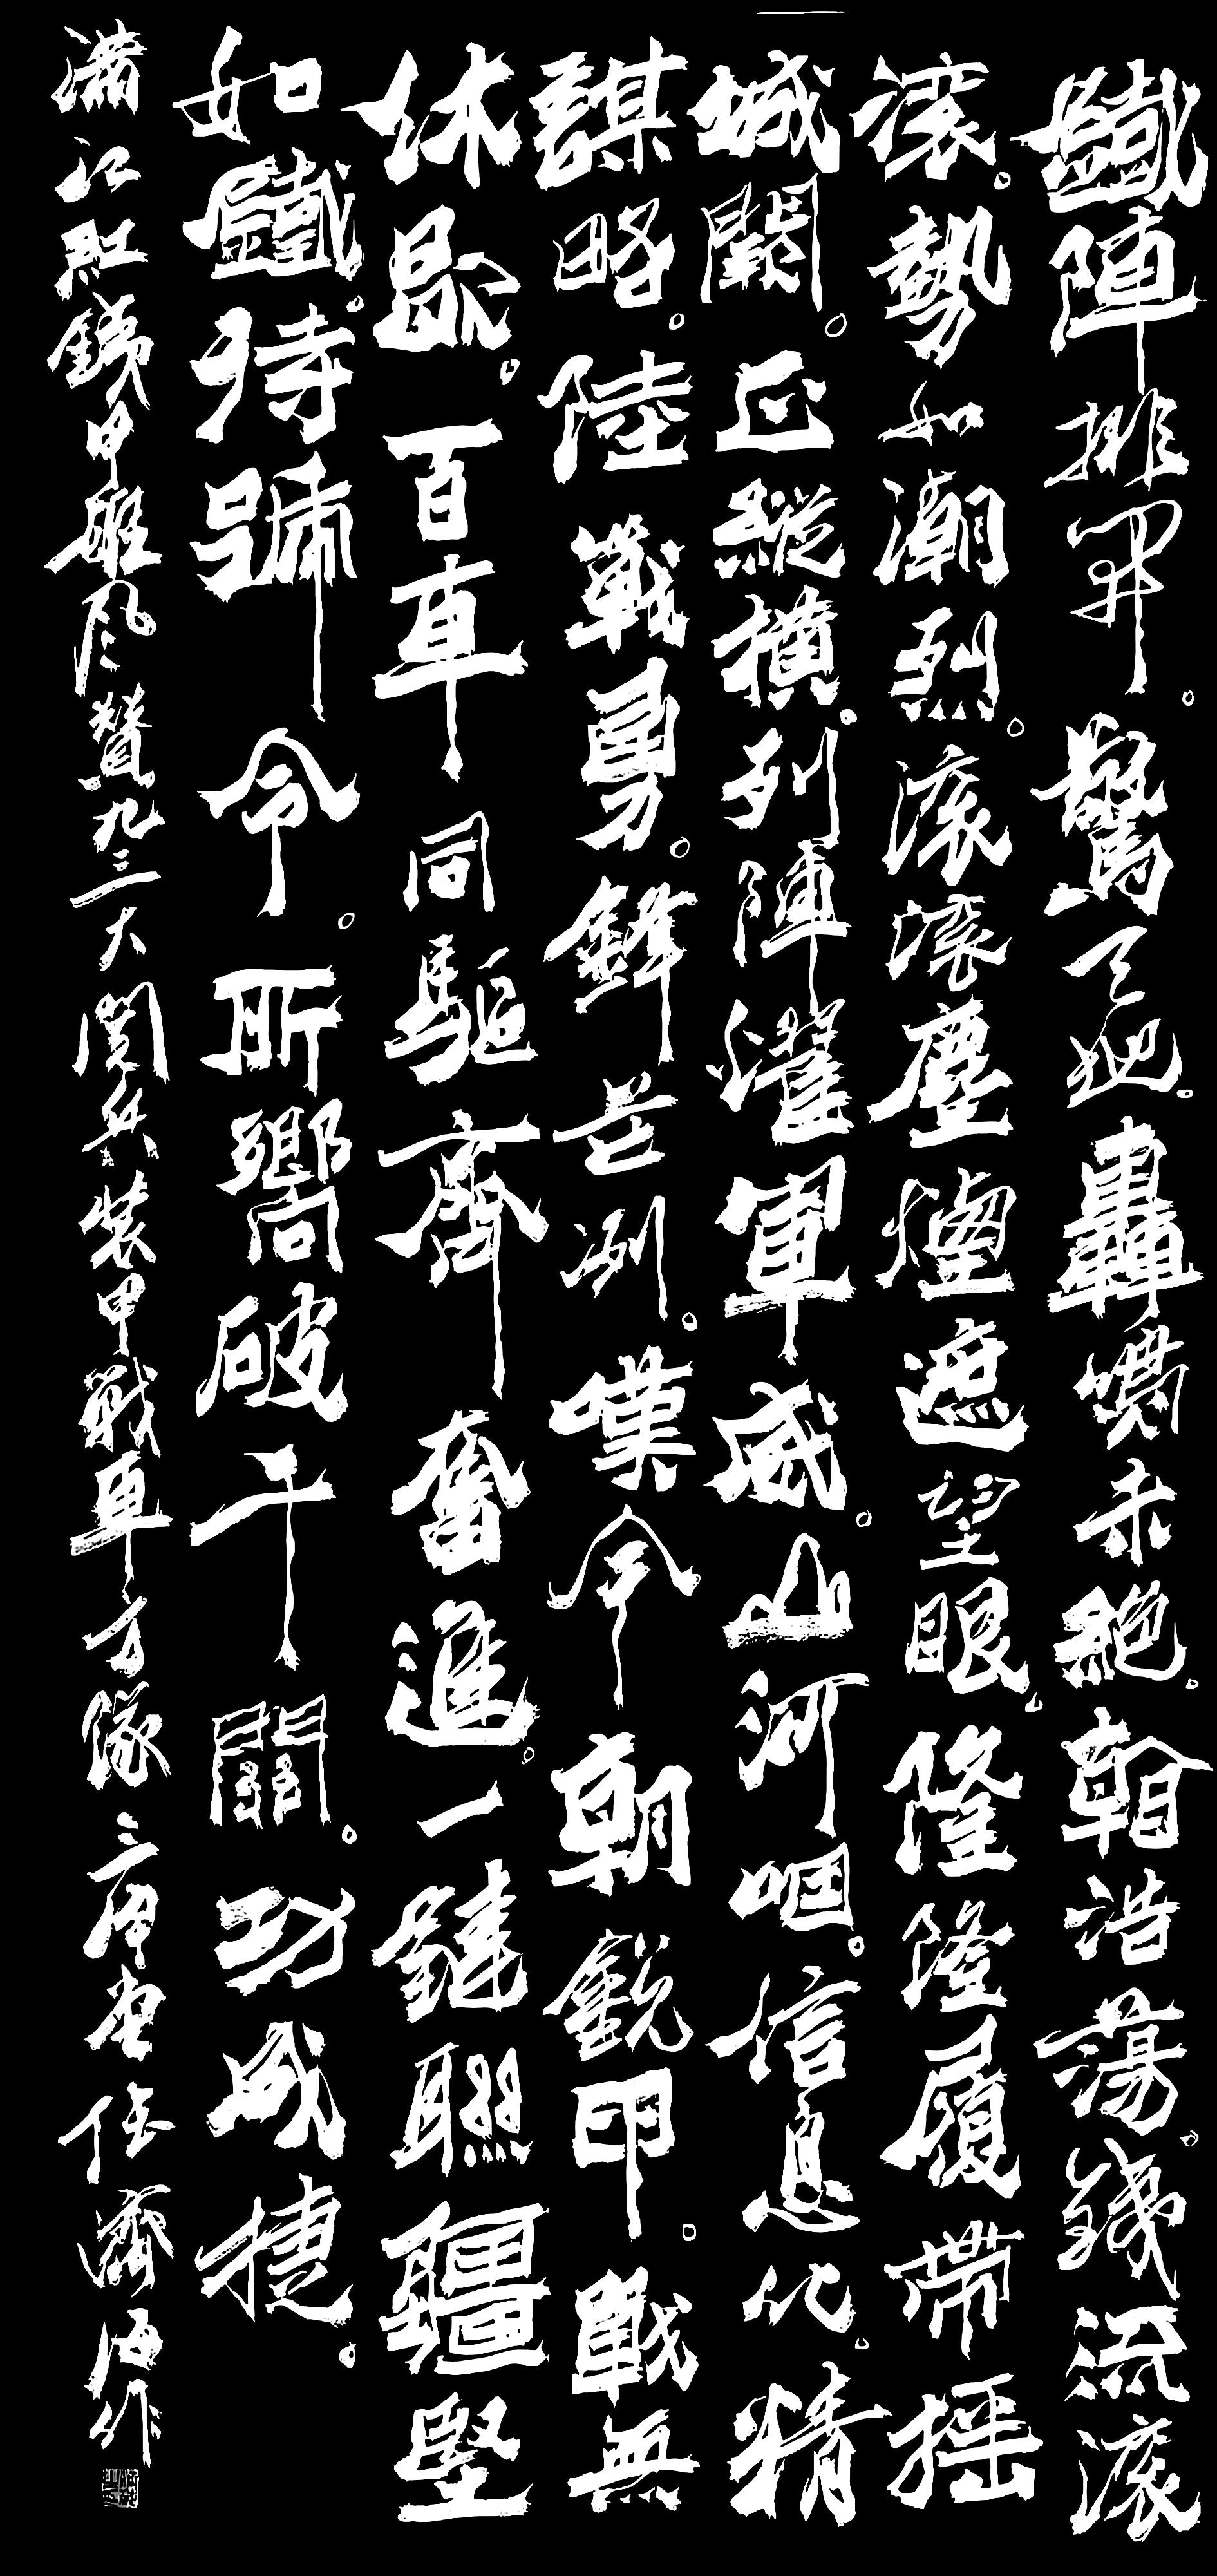 鐵陣排開。驚天地。轟嘶未絕。翰浩蕩。鐵流滾
滾。勢如潮烈。滾滾塵煙遮望眼。隆隆履帶摇
城闕。正縱橫。列陣灌軍威。山河咽。信息化。精
謀略。陸戰勇。鋒芒冽。嘆今朝銳甲。戰無
休歇。百車同驅齊奮進。一鏈聯疆堅
如鐵。待號令。所嚮破千關。功成捷。
满江红鐵甲雄风贊九三大閱兵装甲戰車方隊 庚 任濟海作